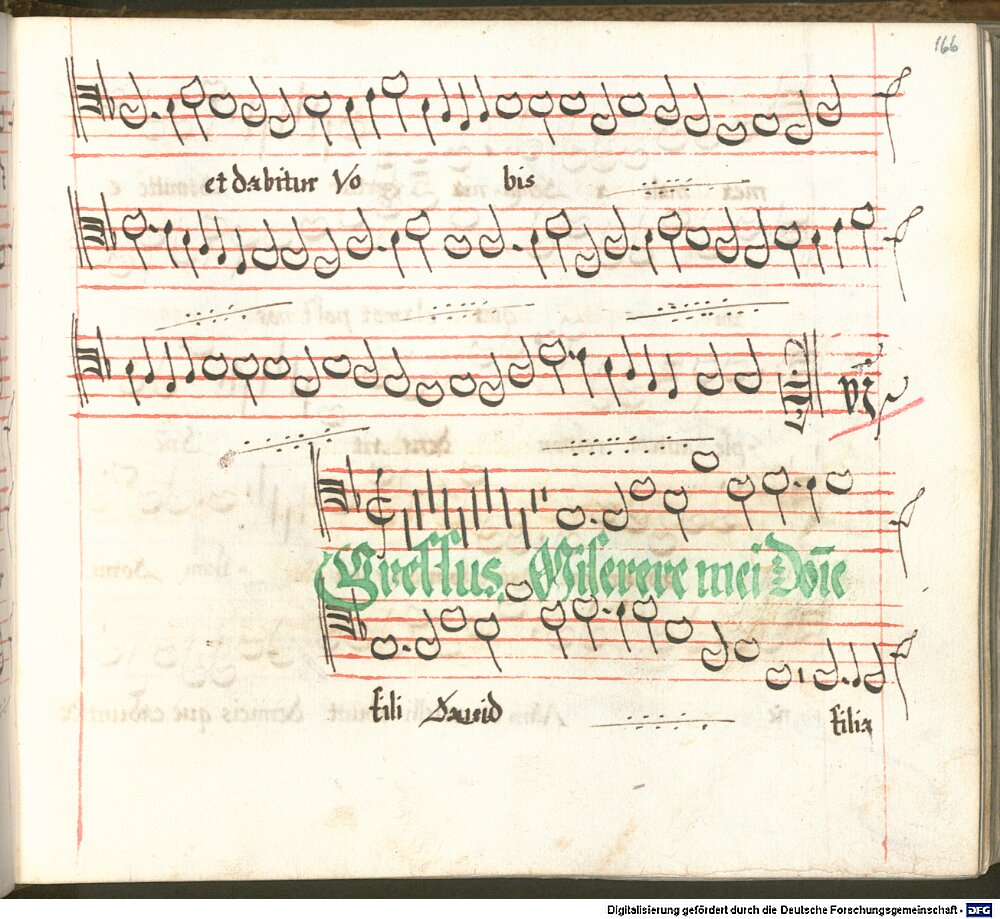 166
et dabitur Vo bis
Egressus Miserere mei Dñe
fili Dauid filia
Digitalisierung gefördert durch die Deutsche Forschungsgemeinschaft - DFG